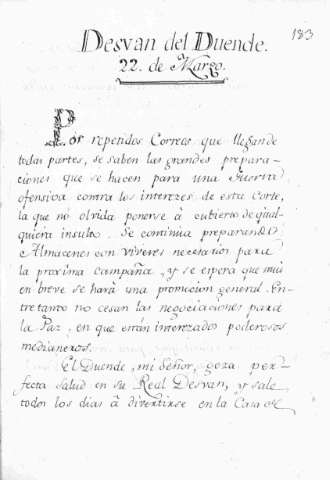 183
Desvan del Duende.
22. de Marzo.
Por repetidos Correos que llegan de
todas partes, se saben las grandes prepara-
ciones que se hacen para una Guerra
ofensiva contra los interezes de esta Corte,
la que no olvida ponerse à cubierto de qual-
quiera insulto. Se continua preparando
Almacenes con viveres necesarios para
la proxima campaña, y se espera que mui
en breve se harà una promocion general. En-
tretanto no cesan las negociaciones para
la Paz, en que están interezados poderosos
medianeros.
El Duende, mi Señor, goza per-
fecta salud en su Real Desvan, y sale
todos los dias à divertirse en la Caza de